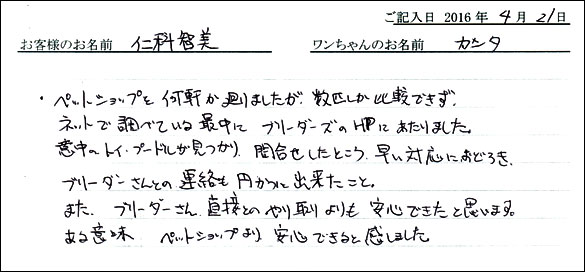 ご記入日 2016 年 4 月 21 日
お客様のお名前 仁科智美 ワンちゃんのお名前 カンタ
・ペットショップを何軒か廻りましたが、数匹しか比較できず、
ネットで調べている最中にブリーダーズのHPにあたりました。
意中のトイ・プードルが見つかり、問合せしたところ、早い対応におどろき、
ブリーダーさんとの連絡も円かつに出来たこと。
また、ブリーダーさん直接とのやり取りよりも安心できたと思います。
ある意味、ペットショップより、安心できると感じました。